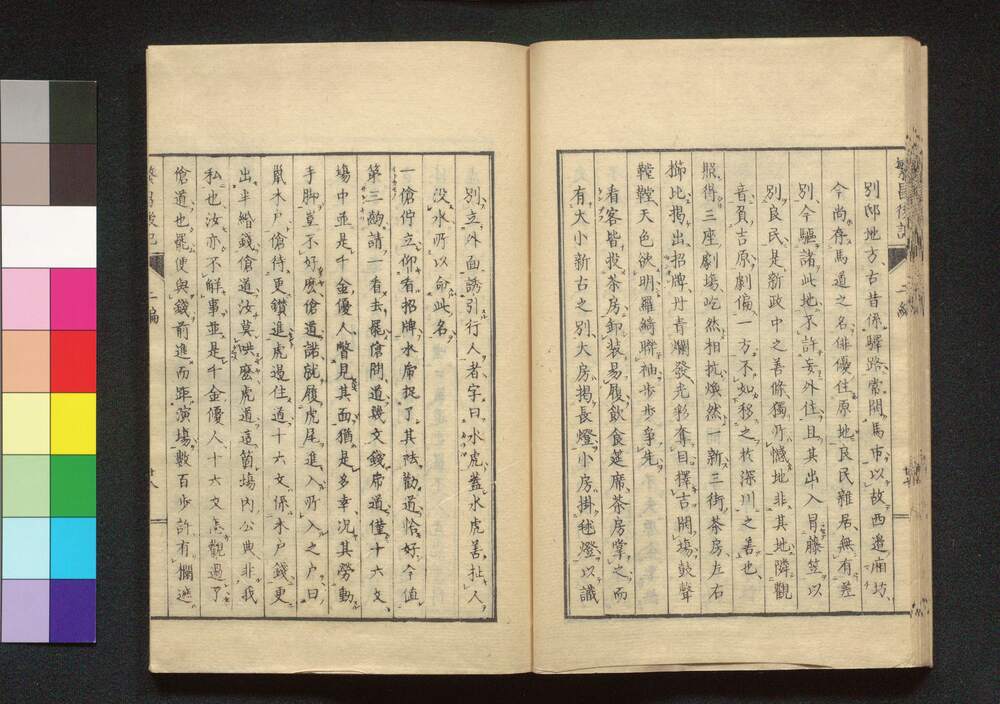 別邸地方古昔係驛路常開馬市以故西邉廂坊
今尚存馬道之名俳優住原地良民雜居無有差
別今驅諸此地不許妄外住且其出入冒藤笠以
別良民是新政中之善條獨乃憾地非其地隣觀
音負吉原劇偏一方不如移之於深川之善也
眼得三座劇塲屹然相抗煥然一新三街茶房左右
櫛比揭出招牌丹青爛發光彩奪目擇吉開塲鼓聲
鞺鞺天色欲明羅綺聯袖步步爭先
看客皆投茶房卸裝易履飲食筵席茶房掌之而
有大小新古之別大房揭長燈小房掛毬燈以識
別立外面誘引行人者字曰水虎蓋水虎善扯人
没水所以命此名
一傖佇立仰看招牌水虎捉了其袪勸道恰好今値
第三齣請一看去罷傖問道幾文錢虎道僅十六文
塲中並是千金優人瞥見其面猶是多幸况其勞動
手脚豈不好麽傖道諾就履虎尾進入所入之戸曰
鼠木戸傖待更鑚進虎遏住道十六文係木戸錢更
出半緡錢傖道汝莫哄麽虎道這箇塲内公典非我
私也汝亦不解事並是千金優人十六文怎觀過了
傖道也罷便與錢前進而距演塲數百步許有欄遮